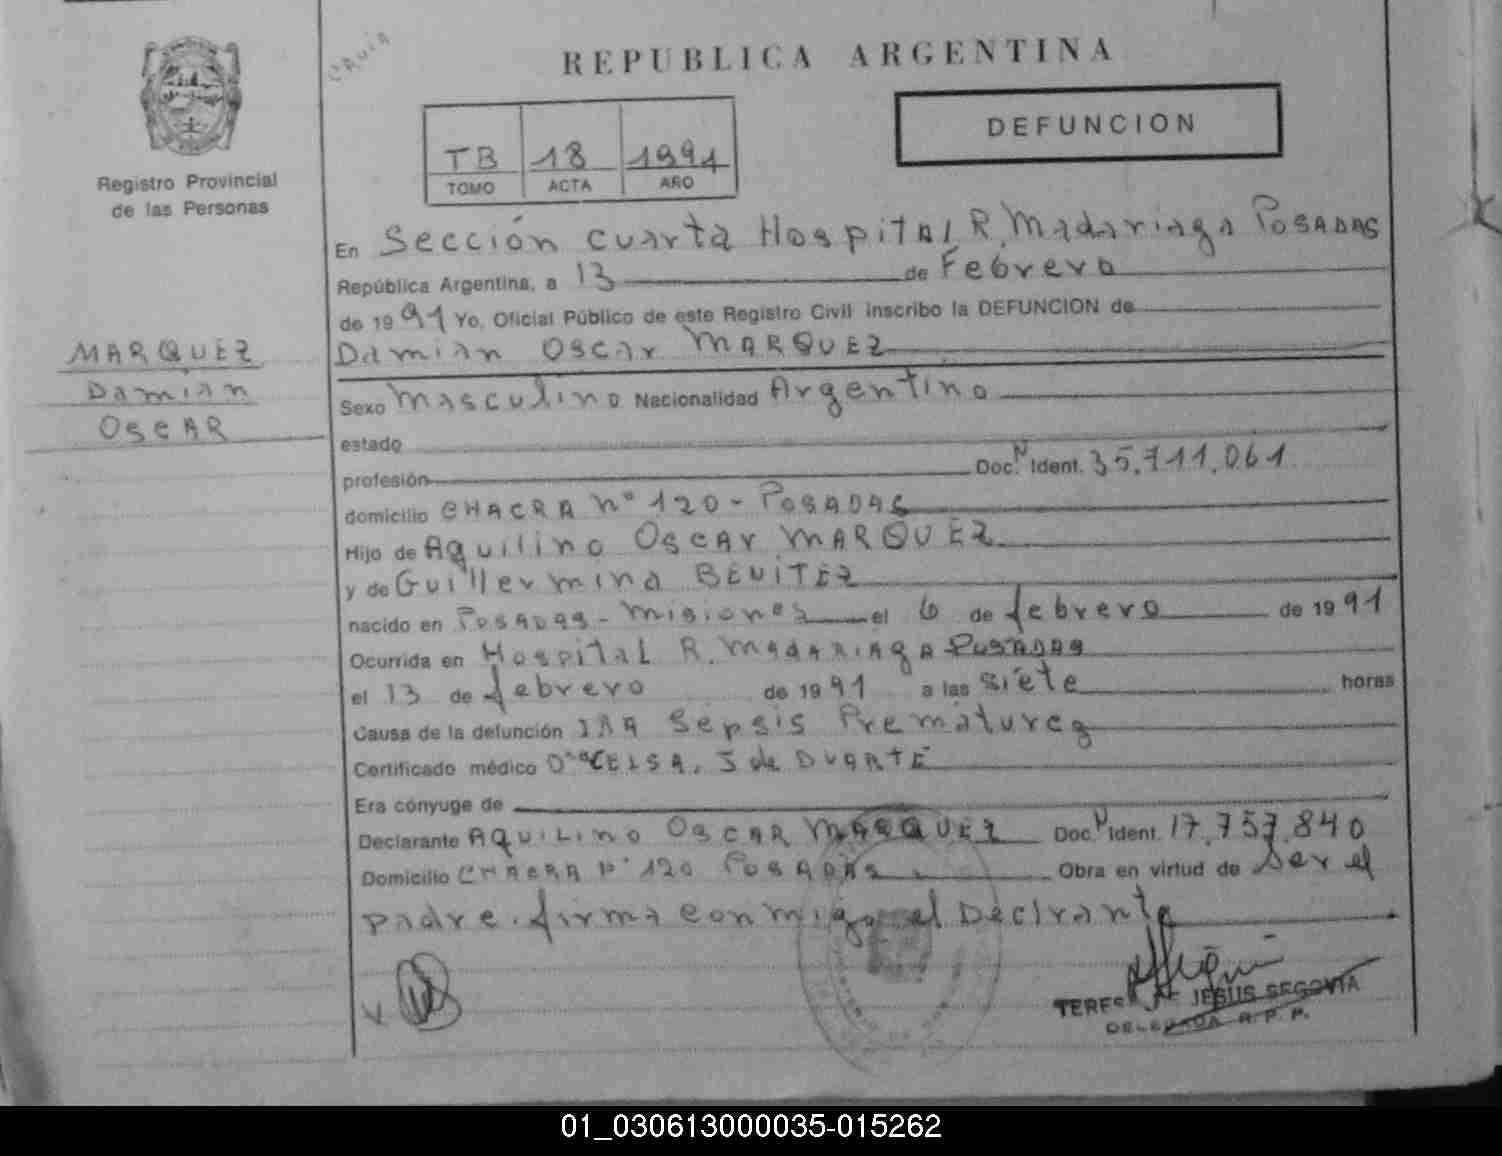 REPUBLICA ARGENTINA
DEFUNCION
TB 18 1991
TOMO ACTA AÑO
Registro Provincial
de las Personas
MARQUEZ
Damian
OSCAR
En Sección cuarta Hospital R. Madariaga POSADAS
República Argentina, a 13 de Febrero
de 1991 Yo, Oficial Público de este Registro Civil inscribo la DEFUNCION de
Damian Oscar MARQUEZ
Sexo masculino Nacionalidad Argentino
estado
profesión Doc. N Ident. 35.711.061
domicilio CHACRA nº 120 - POSADAS
Hijo de Aquilino OSCAR MARQUEZ
y de Guillermina BENITEZ
nacido en POSADAS - misiones el 6 de febrero de 1991
Ocurrida en Hospital R. MADARIAGA POSADAS
el 13 de febrero de 1991 a las siete horas
Causa de la defunción IRA Sepsis Prematurez
Certificado médico Dra CELSA. J de DUARTE
Era cónyuge de
Declarante AQUILINO OSCAR MARQUEZ Doc. N Ident. 17.757.840
Domicilio CHACRA Nº 120 POSADAS Obra en virtud de ser el
padre. firma conmigo el Declrante
JESUS SEGOVIA
DELEGADA R. P. P.
01_030613000035-015262